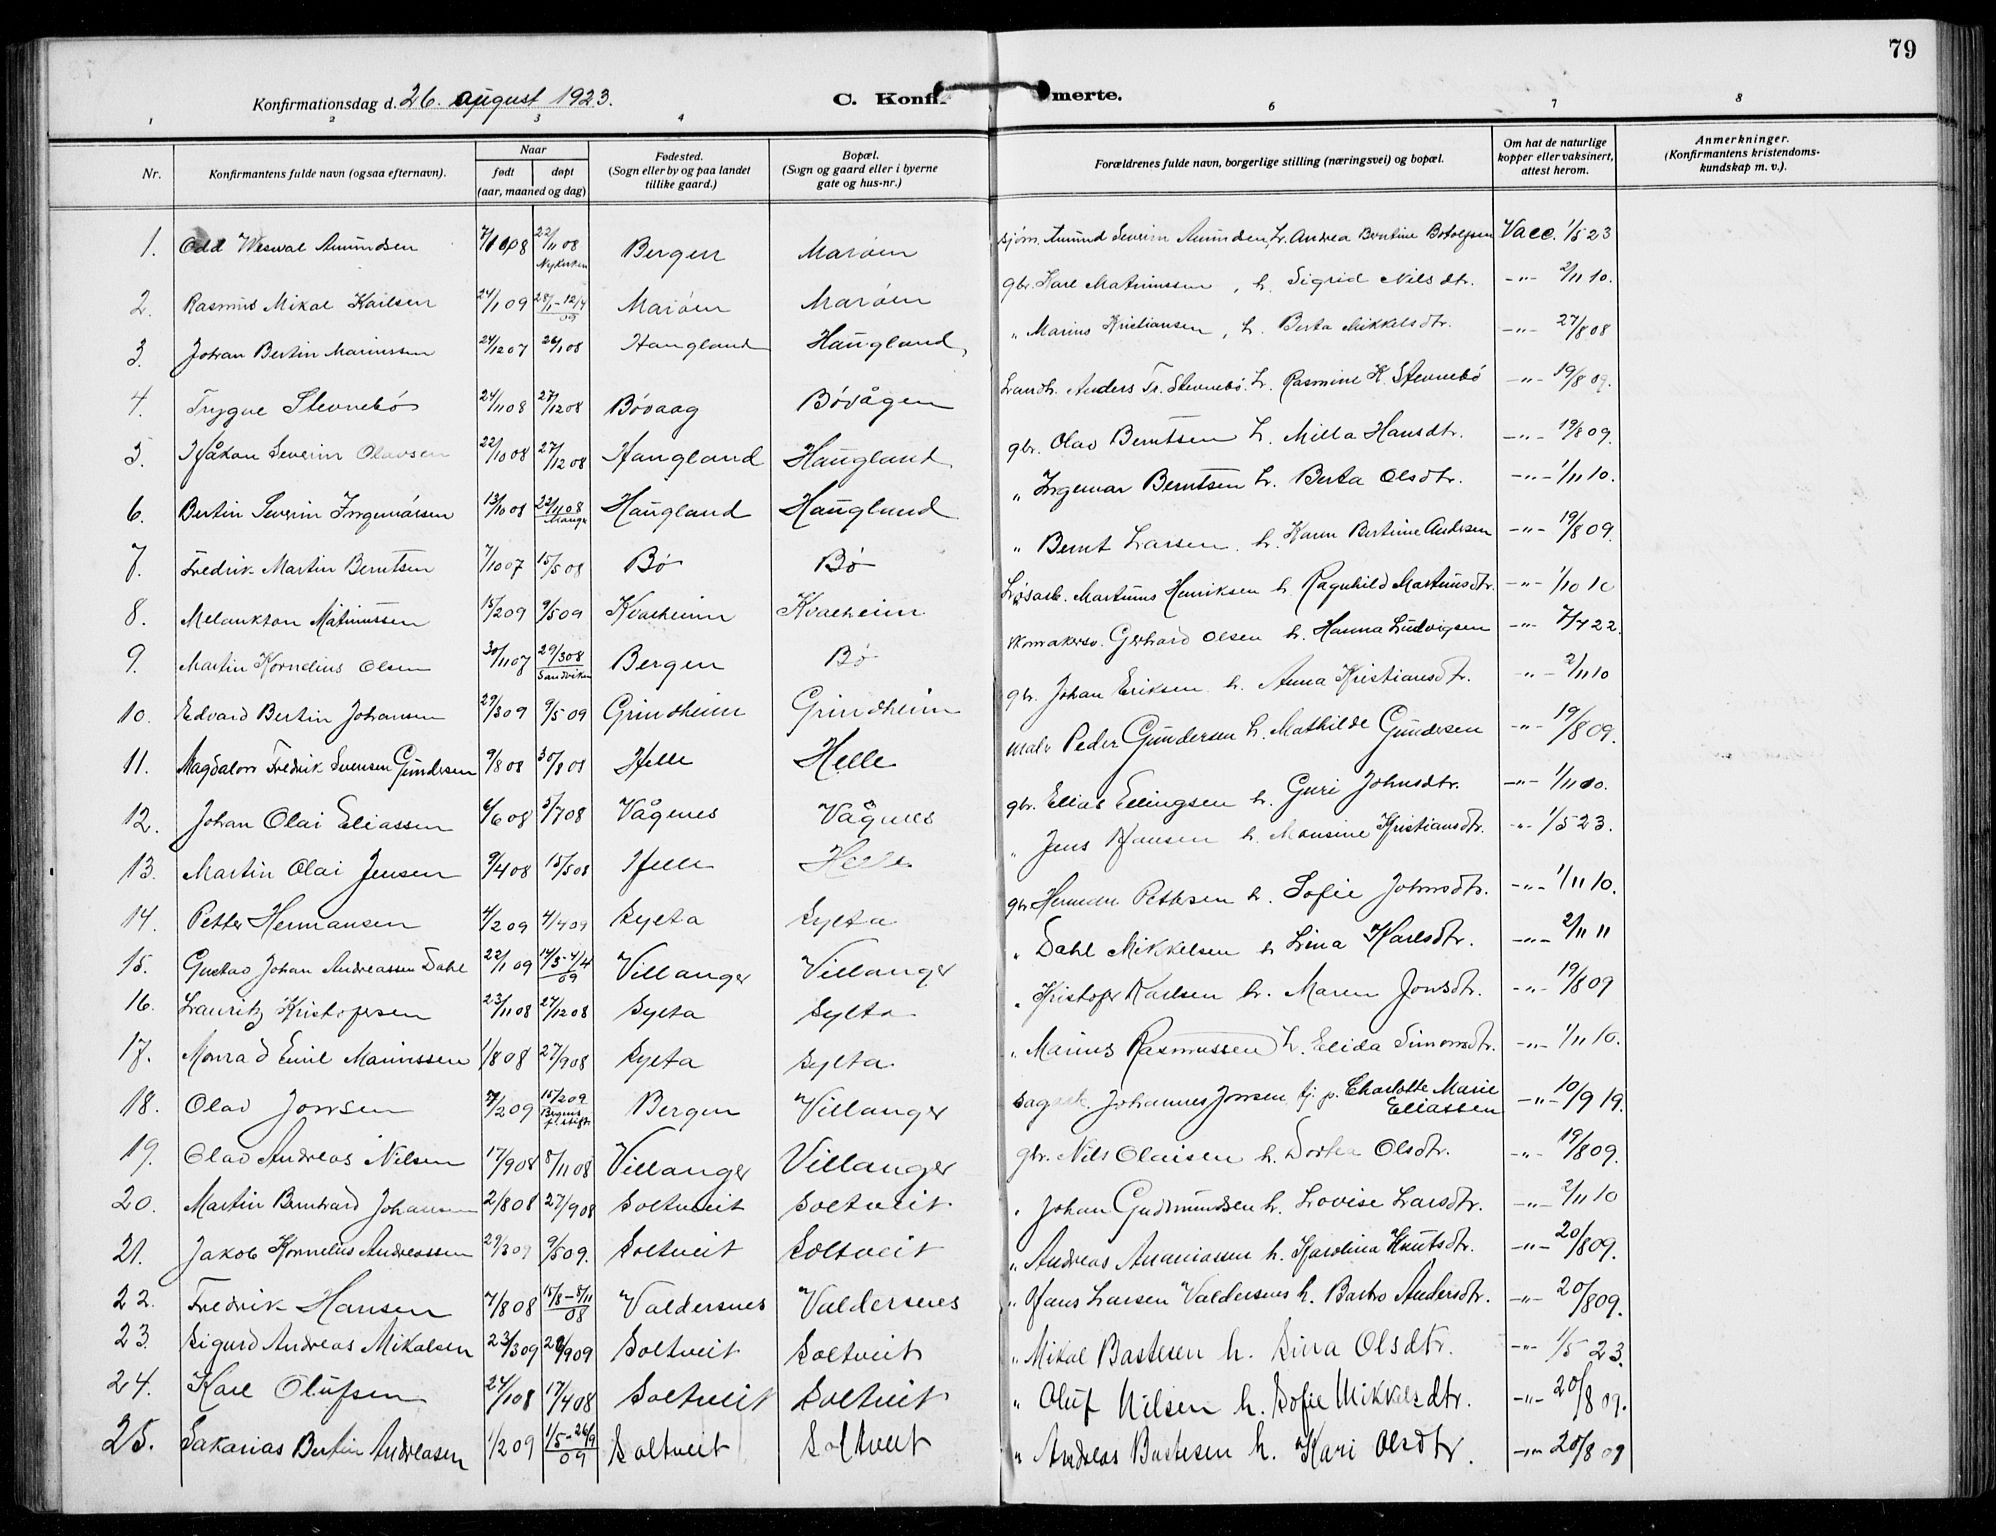 79
Konfirmationsdag d. 26. august 1923.
C. Konfi merte.
1 2 3 4 6 7 8
Nr. Konfirmantens fulde navn (ogsaa efternavn). Naar født døpt (aar, maaned og dag) Fødested. (Sogn eller by og paa landet tillike gaard.) Bopæl. (Sogn og gaard eller i byerne gate og hus-nr.) Forældrenes fulde navn, borgerlige stilling (næringsvei) og bopæl. Om hat de naturlige kopper eller vaksinert, attest herom. Anmerkninger. (Konfirmantens kristendoms-kundskap m. v.).
1. Odd Weswal Amundsen 22/11 08 Nykirken Bergen Marøen Amund Severin Amundsen, h. Andrea Bertine Botolfsen Vacc. 1/5 23
2. Rasmus Mikal Karlsen 24/1 09 28/1-12/4 09 Marøen Marøen gbr. Karl Matinussen, h. Sigrid Nilsdtr. -"- 2/11 10.
3. Johan Bertin Marinssen 24/12 07 26/1 08 Haugland Haugland, " Marius Kristiansen, h. Berta Mikkelsdtr. -"- 27/8 08
4. Trygve Stevnebø 24/11 08 27/12 08 Bøvaag Bøvågen Landh. Anders Tr. Stevnebø. h. Rasmine K. Stevnebø -"- 19/8 09.
5. Håkon Severin Olavsen 22/10 08 27/12 08 Haugland Haugland gbr. Olav Berntsen h. Milla Hansdtr. -"- 19/8 09.
6. Bertin Severin Ingemarsen 13/10 08 22/11 08 Manger Haugland Haugland " Ingemar Berntsen h. Berta Olsdtr. -"- 1/11 10.
7. Fredrik Martin Berntsen 7/10 07 15/5 08 Bø Bø " Bernt Larsen. h. Karen Bertine Andersen -"- 19/8 09.
8. Melankton Matinussen 15/2 09 9/5 09 Kvalheim Kvalheim Løsarb. Martinus Henriksen h. Ragnhild Martinusdtr. -"- 1/10 10
9. Martin Kornelius Olsen 30/11 07 29/3 08 Sandviken Bergen Bø skomakersv. Gerhard Olsen h. Hanna Ludvigsen -"- 7/7 22.
10. Edvard Bertin Johansen 29/3 09 9/5 09 Grindheim Grindheim gbr. Johan Eriksen h. Anna Kristiansdtr. -"- 2/11 10
11. Magdalon Fredrik Svensen Gundersen 9/8 08 30/8 08 Helle Helle maler Peder Gundersen h. Mathilde Gundersen -"- 19/8 09.
12. Johan Olai Eliassen 6/6 08 5/7 08 Vågenes Vågenes gbr. Elias Ellingsen h. Guri Johnsdtr. -"- 1/11 10.
13. Martin Olai Jensen 9/4 08 15/5 08 Helle Helle " Jens Hansen h. Monsine Kristiansdtr. -"- 1/5 23.
14. Petter Hermansen 4/2 09 4/4 09 Sylta Sylta gbr Herman Pettersen h. Sofie Johnsdtr. -"- 1/11 10.
15. Gustav Johan Andreassen Dahl 22/1 09 14/3-4/4 09 Villanger Villanger " Dahl Mikkelsen h Lina Karlsdtr. -"- 2/11 11
16. Lauritz Kristofersen 23/11 08 27/12 08 Sylta Sylta " Kristofer Karlsen h. Maren Jonsdtr. -"- 19/8 09
17. Monrad Emil Marinssen 1/8 08 27/9 08 Sylta Sylta " Marius Rasmussen h. Elida Simonsdtr. -"- 1/11 10.
18. Olav Jonsen 7/2 09 15/2 09 Bergens Bergen Villanger sagarb. Johannes Jonsen fj. p. Charlotte Marie Eliassen -"- 10/9 19.
19. Olav Andreas Nilsen 17/9 08 8/11 08 Villanger Villanger gbr. Nils Olaisen h. Dortea Olsdtr. -"- 19/8 09.
20. Martin Bernhard Johansen 2/8 08 27/9 08 Soltveit Soltveit " Johan Gudmundsen h. Lovise Larsdtr. -"- 2/11 10
21. Jakob Kornelius Andreassen 29/3 09 9/5 09. Soltveit Soltveit " Andreas Ananiassen h. Karolina Knutsdtr. -"- 20/8 09.
22. Fredrik Hansen 7/8 08 15/8-8/11 08 Valdersnes Valdersnes " Hans Larsen Valdersnes h. Barbro Andersdtr. -"- 20/8 09.
23. Sigurd Andreas Mikalsen 23/3 09 26/9 09 Soltveit Soltveit " Mikal Bastesen h. Sina Olsdtr. -"- 1/5 23.
24. Karl Olufsen 24/1 08 17/4 08 Soltveit Soltveit " Oluf Nilsen h. Sofie Mikkelsdtr. -"- 20/8 09.
25. Sakarias Bertin Andreasen 1/2 09 1/5-26/9 09 Soltveit Soltveit " Andreas Bastesen h. Kari Olsdtr. -"- 20/8 09